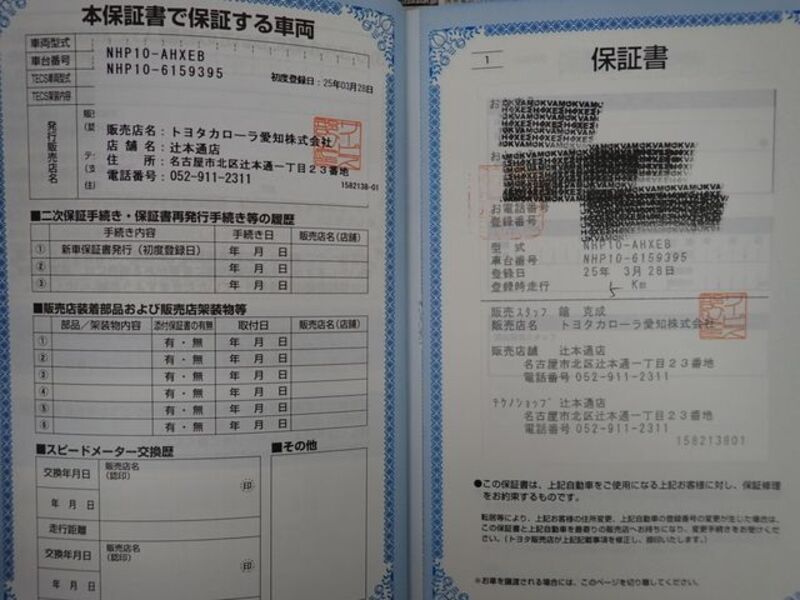 本保証書で保証する車両
車両型式 NHP10-AHXEB
車台番号 NHP10-6159395
TECS車両型式 初度登録日：25年03月28日
TECS架装内容
発行販売店名
販売店名：トヨタカローラ愛知株式会社
店 舗 名：辻本通店
住　　所：名古屋市北区辻本通一丁目２３番地
電話番号：052-911-2311
1582138-01
■二次保証手続き・保証書再発行手続き等の履歴
手続き内容 手続き日 販売店名（店舗）
① 新車保証書発行（初度登録日） 年 月 日
② 年 月 日
③ 年 月 日
■販売店装着部品および販売店架装物等
部品／架装物内容 添付保証書の有無 取付日 販売店名（店舗）
① 有・無 年 月 日
② 有・無 年 月 日
③ 有・無 年 月 日
④ 有・無 年 月 日
⑤ 有・無 年 月 日
⑥ 有・無 年 月 日
■スピードメーター交換歴
交換年月日 販売店名（認印）
年 月 日 印
走行距離
交換年月日 販売店名（認印）
年 月 日 印
■その他
1
保証書
お電話番号
登録番号
型　式 NHP10-AHXEB
車台番号 NHP10-6159395
登録日 25年 3月28日
登録時走行 5 Km
販売スタッフ 克成
販売店名 トヨタカローラ愛知株式会社
販売店舗 辻本通店
名古屋市北区辻本通一丁目２３番地
電話番号 052-911-2311
ﾃｸﾉｼｮｯﾌﾟ 辻本通店
名古屋市北区辻本通一丁目２３番地
電話番号 052-911-2311
158213801
●この保証書は、上記自動車をご使用になる上記お客様に対し、保証修理
をお約束するものです。
転居等により、上記お客様の住所変更、上記自動車の登録番号の変更が生じた場合は、
この保証書と上記自動車を最寄りの販売店へお持ちになり、変更手続きをお受けくだ
さい。（トヨタ販売店が上記記載事項を修正し、捺印いたします。）
＊お車を譲渡される場合には、このページを切り離してください。